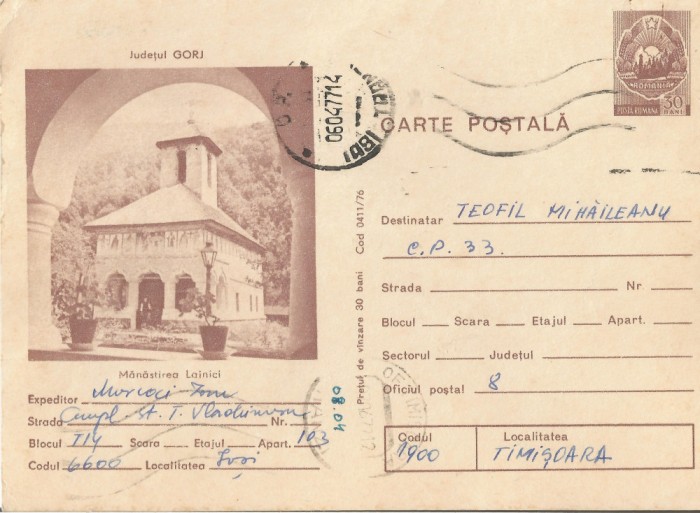 Județul GORJ
POȘTA ROMÂNA 30 BANI
ROMANIA
06047714
CARTE POȘTALĂ
Destinatar TEOFIL MIHĂILEANU
C.P. 33.
Strada Nr
Blocul Scara Etajul Apart.
Sectorul Județul
Oficiul poștal 8
Codul Localitatea
1900 TIMIȘOARA
Prețul de vînzare 30 bani Cod 0411/76
08.04
Mănăstirea Lainici
Expeditor
Strada St. T. Vladimirescu Nr.
Blocul T14 Scara Etajul Apart. 103
Codul 6600 Localitatea Iași